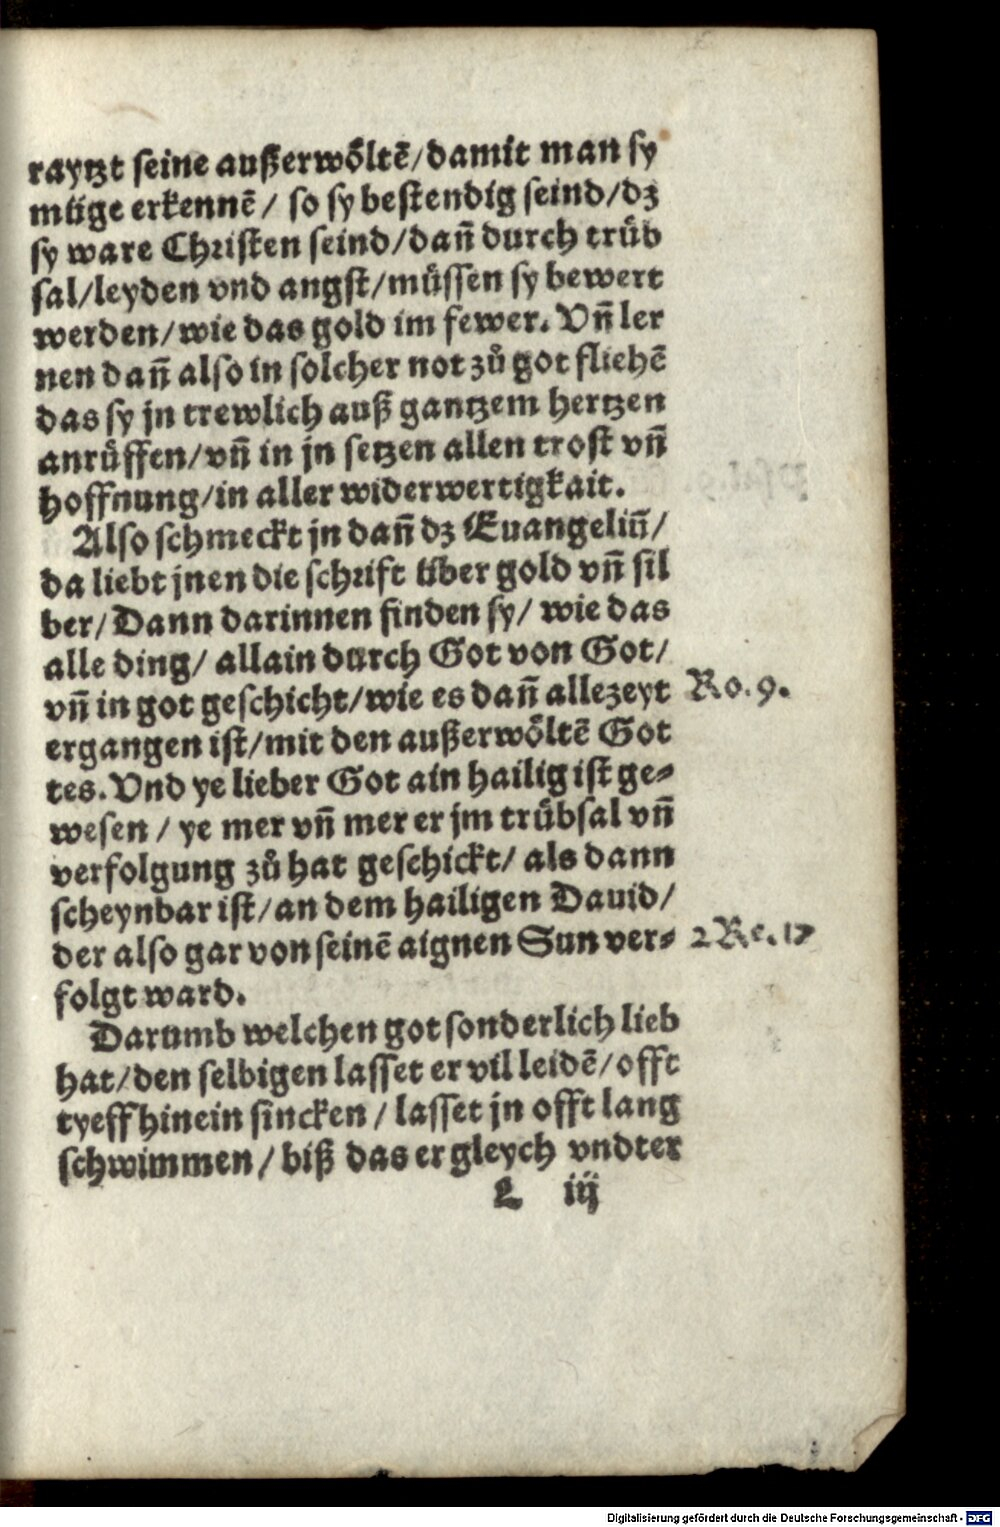 raytzt seine außerwoͤltē/damit man sy
muͤge erkennē/ so sy bestendig seind/dz
sy ware Christen seind/dañ durch truͤb
sal/leyden vnd angst/muͤssen sy bewert
werden/wie das gold im fewer. Vñ ler
nen dañ also in solcher not zuͦ got fliehē
das sy jn trewlich auß gantzem hertzen
anruͤffen/vñ in jn setzen allen trost vñ
hoffnung/in aller widerwertigkait.
Also schmeckt jn dañ dz Euangeliũ/
da liebt jnen die schrift uͤber gold vñ sil
ber/Dann darinnen finden sy/ wie das
alle ding/ allain durch Got von Got/
vñ in got geschicht/wie es dañ allezeyt Ro. 9.
ergangen ist/mit den außerwoͤltē Got
tes. Vnd ye lieber Got ain hailig ist ge⸗
wesen / ye mer vñ mer er jm truͤbsal vñ
verfolgung zuͦ hat geschickt/ als dann
scheynbar ist/an dem hailigen Dauid/
der also gar von seinē aignen Sun ver⸗ 2 Re. 17
folgt ward.
Darumb welchen got sonderlich lieb
hat/den selbigen lasset er vil leidē/offt
tyeff hinein sincken / lasset jn offt lang
schwimmen / biß das er gleych vndter
L iij
Digitalisierung gefördert durch die Deutsche Forschungsgemeinschaft - DFG